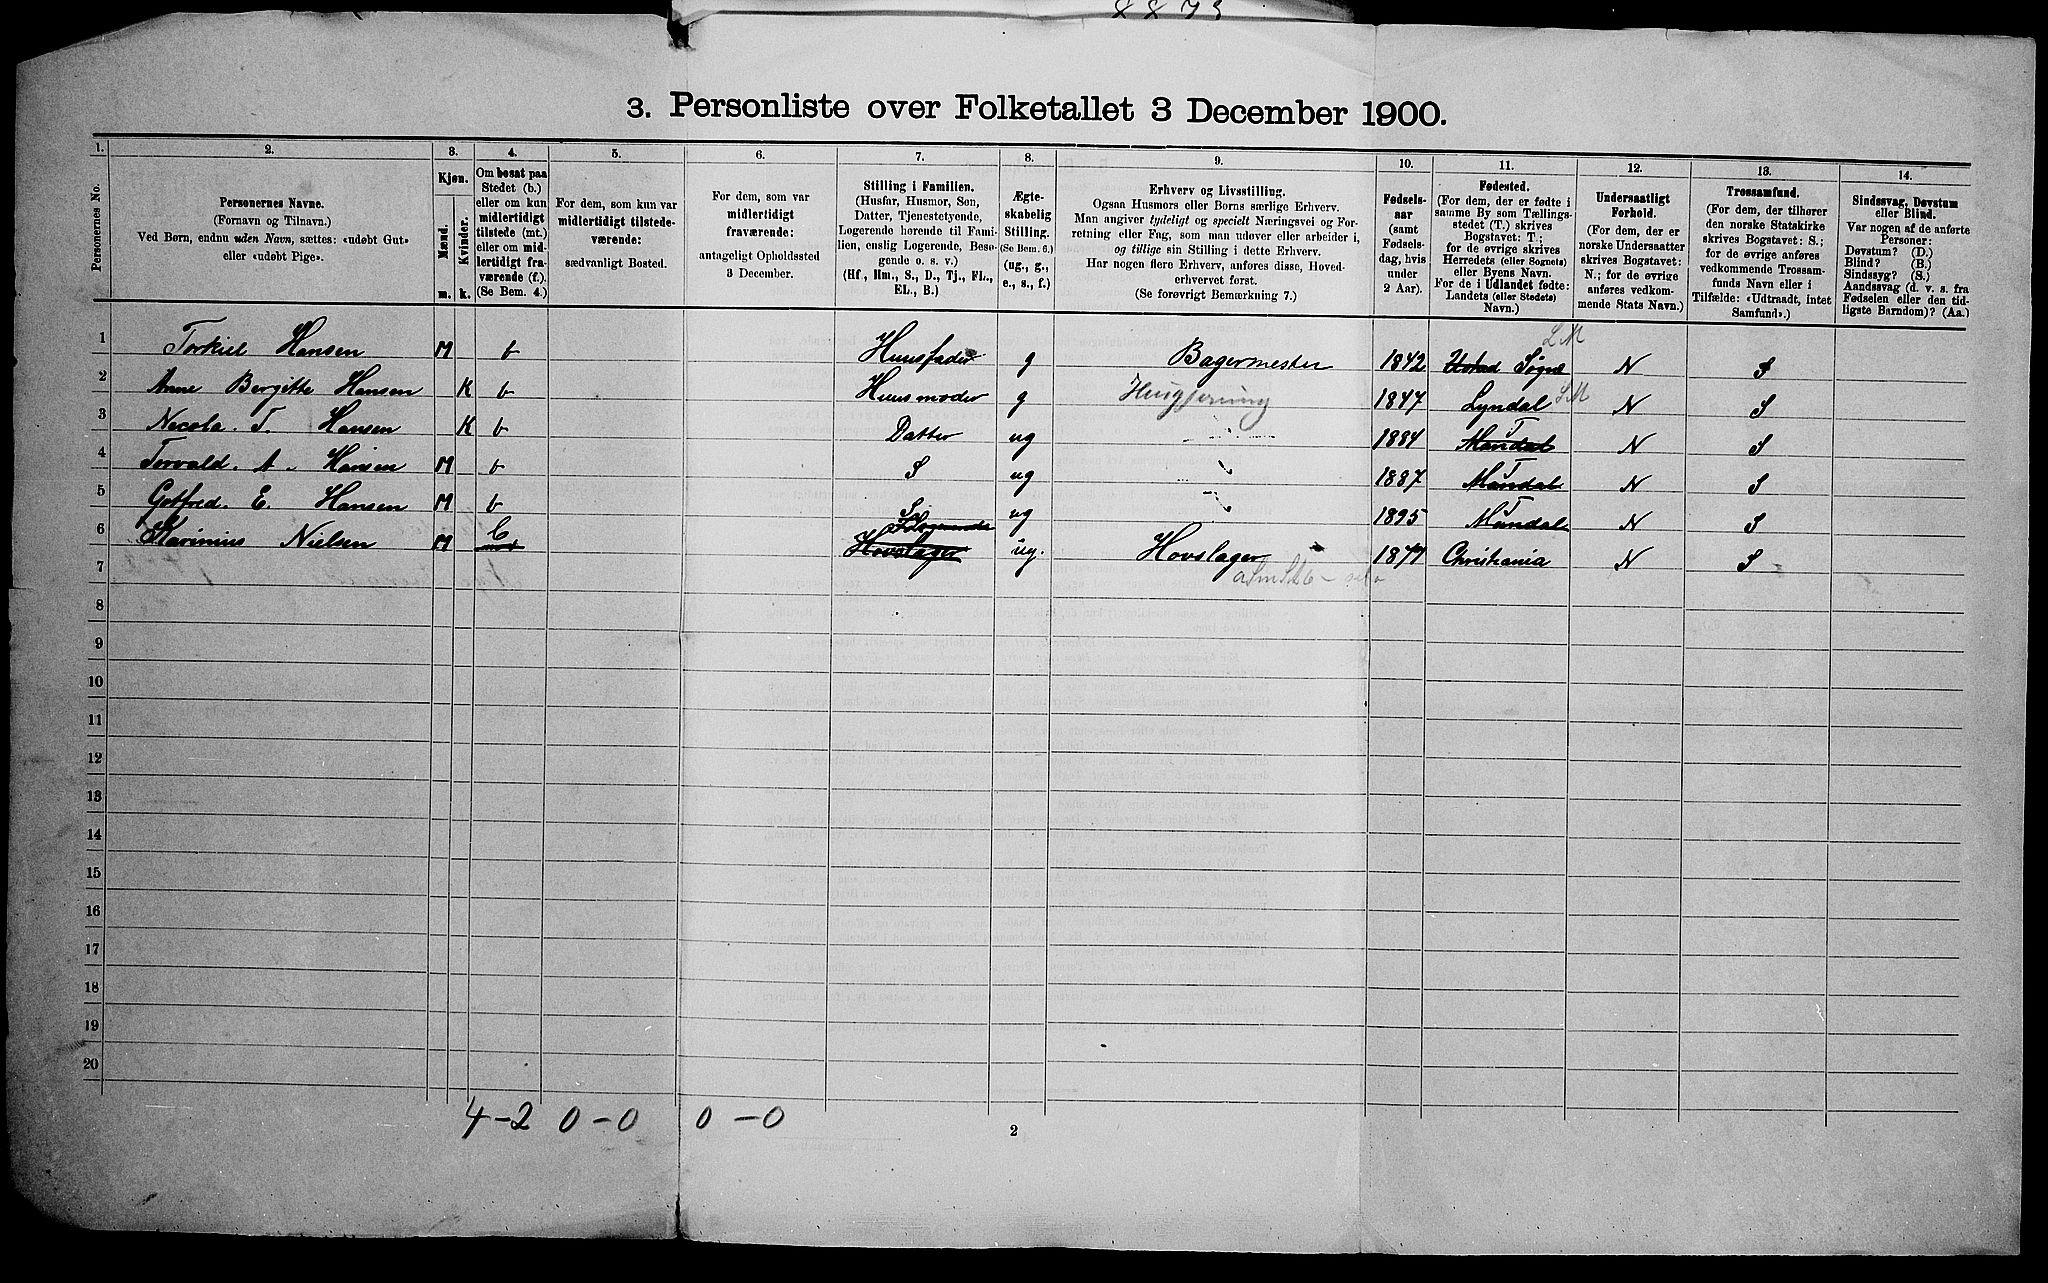 8873
3. Personliste over Folketallet 3 December 1900.
1. 2. 3. 4. 5. 6. 7. 8. 9. 10. 11. 12. 13. 14.
Personernes No.
Personernes Navne.
(Fornavn og Tilnavn.)
Ved Børn, endnu uden Navn, sættes: «udøbt Gut»
eller «udøbt Pige».
Kjøn.
Mænd.
Kvinder.
m. k.
Om bosat paa
Stedet (b.)
eller om kun
midlertidigt
tilstede (mt.)
eller om mid-
lertidigt fra-
værende (f.).
(Se Bem. 4.)
For dem, som kun var
midlertidigt tilstede-
værende:
sædvanligt Bosted.
For dem, som var
midlertidigt
fraværende:
antageligt Opholdssted
3 December.
Stilling i Familien.
(Husfar, Husmor, Søn,
Datter, Tjenestetyende,
Logerende hørende til Fami-
lien, enslig Logerende, Besø-
gende o. s. v.)
(Hf, Hm., S., D., Tj., FL.,
EL., B.)
Ægte-
skabelig
Stilling.
(Se Bem. 6.)
(ug., g.,
e., s., f.)
Erhverv og Livsstilling.
Ogsaa Husmors eller Børns særlige Erhverv.
Man angiver tydeligt og specielt Næringsvei og For-
retning eller Fag, som man udøver eller arbeider i,
og tillige sin Stilling i dette Erhverv.
Har nogen flere Erhverv, anføres disse, Hoved-
erhvervet først.
(Se forøvrigt Bemærkning 7.)
Fødsels-
aar
(samt
Fødsels-
dag, hvis
under
2 Aar).
Fødested.
(For dem, der er fødte i
samme By som Tællings-
stedet (T.) skrives
Bogstavet: T.;
for de øvrige skrives
Herredets (eller Sognets)
eller Byens Navn.
For de i Udlandet fødte:
Landets (eller Stedets)
Navn.)
Undersaatligt
Forhold.
(For dem, der er
norske Undersaatter
skrives Bogstavet:
N.; for de øvrige
anføres vedkom-
mende Stats Navn.)
Trossamfund.
(For dem, der tilhører
den norske Statskirke
skrives Bogstavet: S.;
for de øvrige anføres
vedkommende Trossam-
funds Navn eller i
Tilfælde: «Udtraadt, intet
Samfund».)
Sindssvag, Døvstum
eller Blind.
Var nogen af de anførte
Personer:
Døvstum? (D.)
Blind? (B.)
Sindssyg? (S.)
Aandssvag (d. v. s. fra
Fødselen eller den tid-
ligste Barndom)? (Aa.)
1 Torkiel Hansen M b Huusfader g Bagermester 1842 Ustad Søgne LM N S
2 Anne Bergitte Hansen K b Huusmoder g Husgjerning 1847 Lyndal LM N S
3 Necola. T. Hansen K b Datter ug 1884 Mandal T N S
4 Torvald. A. Hansen M b S ug 1887 Mandal T N S
5 Gotfred. E. Hansen M b S ug 1895 Mandal T N S
6 Marinius Nielsen M b Hovslager ug. Hovslager 1877 Christiania N S
7
8
9
10
11
12
13
14
15
16
17
18
19
20
4-2 0-0 0-0
2